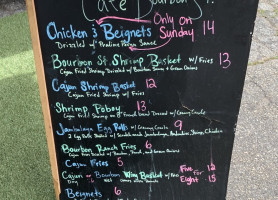 Cafe Bourbon St.
Chicken & Beignets Only on Sunday 14
Drizzled w/ Praline Pecan Sauce
Bourbon St. Shrimp Basket w/ Fries 13
Cajun Fried Shrimp Drizzled w/ Bourbon Sauce & Green Onions
Cajun Shrimp Basket 12
Cajun Fried Shrimp w/ Fries
Shrimp Poboy 13
Jambalaya Egg Rolls w/ Creamy Creole 9
2 Egg Rolls Stuffed w/ Jambalaya, Andouille, Shrimp, Chicken
Bourbon Ranch Fries 6
Cajun Fries 5
Cajun or Bourbon Wing Basket w/ Fries Five for 12
Eight 15
Beignets 6